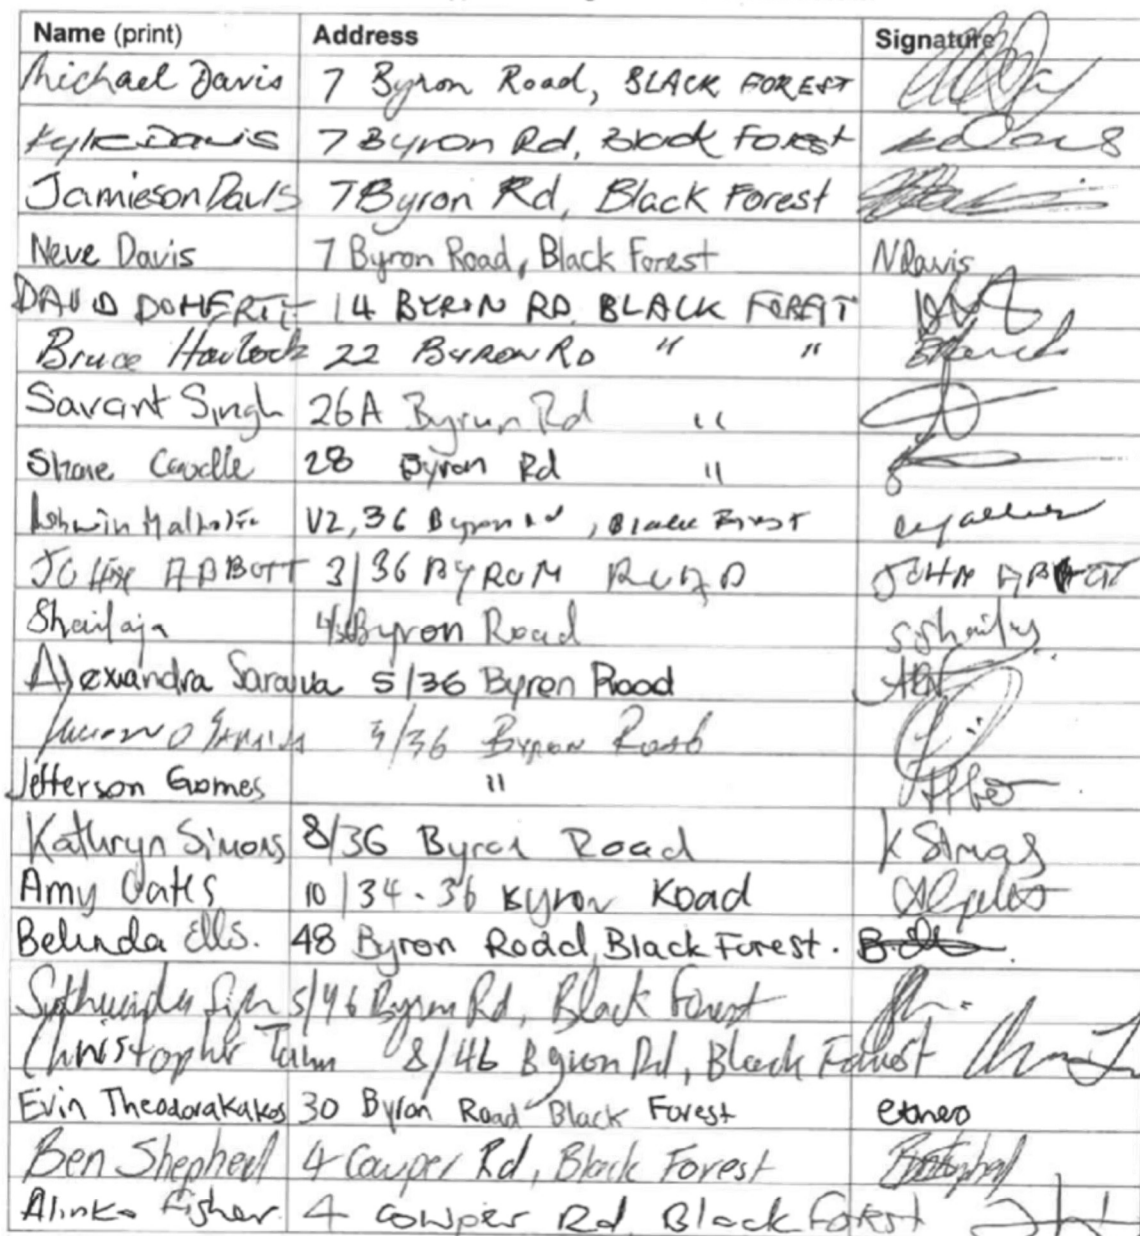 Name (print) Address Signature
Michael Davis 7 Byron Road, BLACK FOREST
Kyle Davis 7 Byron Rd, Black Forest K Davis
Jamieson Davis 7 Byron Rd, Black Forest
Neve Davis 7 Byron Road, Black Forest NDavis
DAVID DOHERTY 14 BYRON RD BLACK FOREST
Bruce Havlock 22 BYRON RD " "
Savant Singh 26A Byron Rd "
Shane Cavelle 28 Byron Rd "
Ashwin Malhotra U2, 36 Byron Rd, Black Forest
JOHN ABBOTT 3/36 BYRON ROAD JOHN ABBOTT
Shailaja 4/36 Byron Road
Alexandra Saraiva 5/36 Byron Road
5/36 Byron Road
Jefferson Gomes "
Kathryn Simons 8/36 Byron Road K Simons
Amy Oates 10/34-36 Byron Road
Belinda Ells. 48 Byron Road, Black Forest.
5/46 Byron Rd, Black Forest
Christopher Tamm 8/46 Byron Rd, Black Forest
Evin Theodorakakos 30 Byron Road Black Forest
Ben Shepherd 4 Cowper Rd, Black Forest
Alinka Fisher 4 Cowper Rd Black Forest